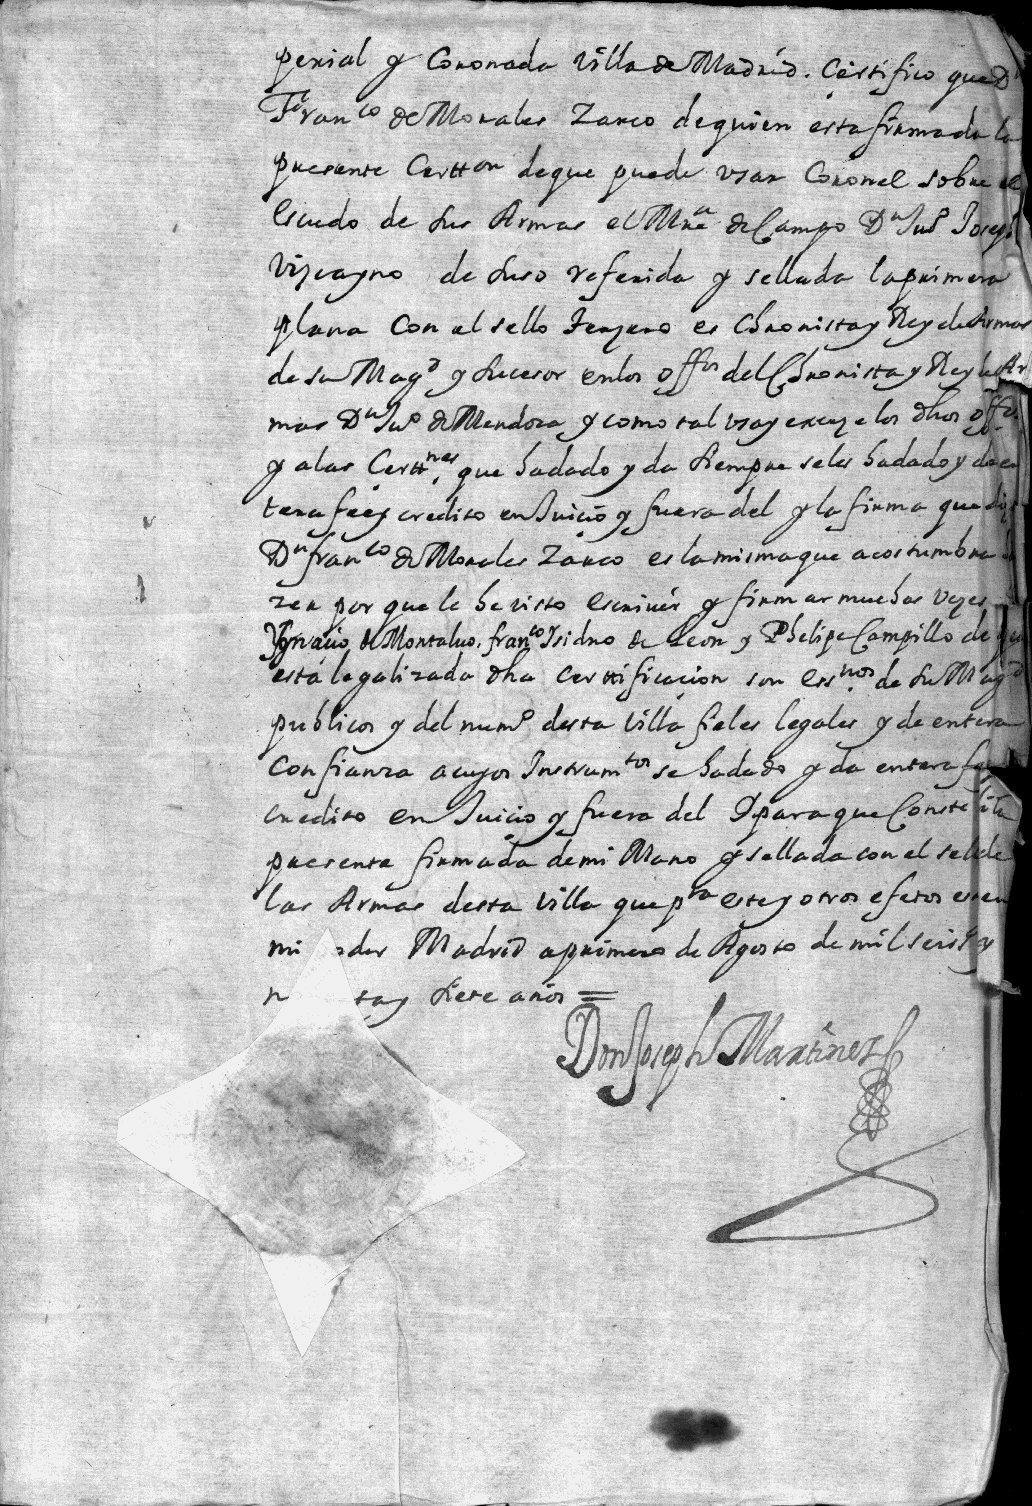 perial y Coronada Villa de Madrid. Certifico que Dn
Franco de Morales Zarco de quien esta firmada la
presente Certton de que puede vsar Coronel sobre el
escudo de sus Armas el Mre de Campo Dn Juo Joseph
Vizcayno de suso referida y sellada la primera
plana con el sello terzero es Chronista y Rey de Armas
de su Magd y sucesor en los offos del Chronista y Rey de Ar
mas Dn Juo de Mendoza y como tal vsa y exerze los dhos offos
y a las Certtnes que ha dado y da siempre se les ha dado y da en
tera fee y credito en Juicio y fuera del y la firma que dize
Dn franco de Morales Zarco es la misma que acostumbra
zer por que le he visto escriuir y firmar muchas vezes
Ygnacio de Montaluo, franco Isidro de Leon y Phelipe Campillo de quien
está legalizada dha certtificacion son essnos de su Magd
publicos y del numo desta villa fieles legales y de entera
confianza a cuyos Instrumtos se ha dado y da entera fee
credito en Juicio y fuera del Y para que Conste di la
presente firmada de mi Mano y sellada con el sello de
las Armas desta villa que pra este y otros efetos esta en
mi poder Madrid a primero de Agosto de mil seiss y
n ta y siete años =
Don Joseph Martinez